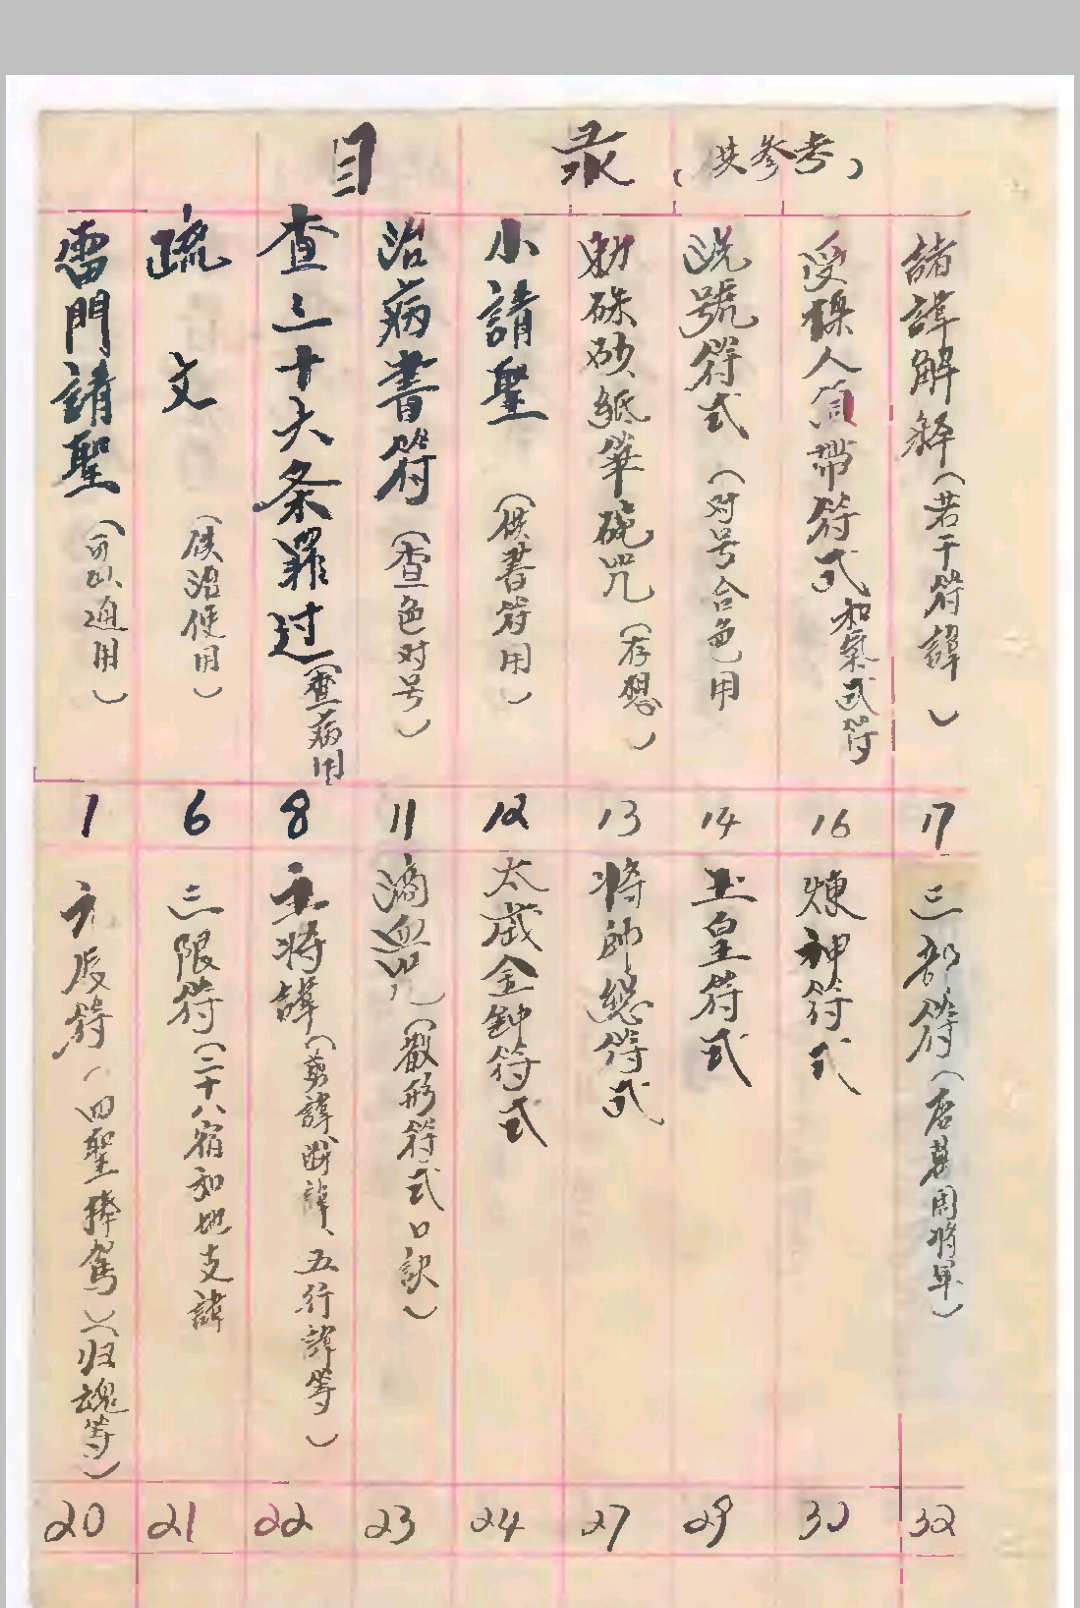 目录（供参考）
雷門請聖（可以通用）
1
疏文（供治使用）
6
查三十六条罪过（查病用
8
治病書符（查色对号）
11
小請聖（供書符用）
12
勅硃砂紙筆硯咒（存想）
13
洗號符式（对号合色用
14
受操人肩帶符式和氣式符
16
諸諱解释（若干符諱）
17
元辰符（四聖捧駕）（归魂等）
20
三限符（二十八宿和地支諱
21
主将諱（剪諱、断諱、五行諱等）
22
滴血咒（散形符式口訣）
23
太歲金鈡符式
24
将帥總符式
27
玉皇符式
29
煉神符式
30
三部符（唐葛周将軍）
32